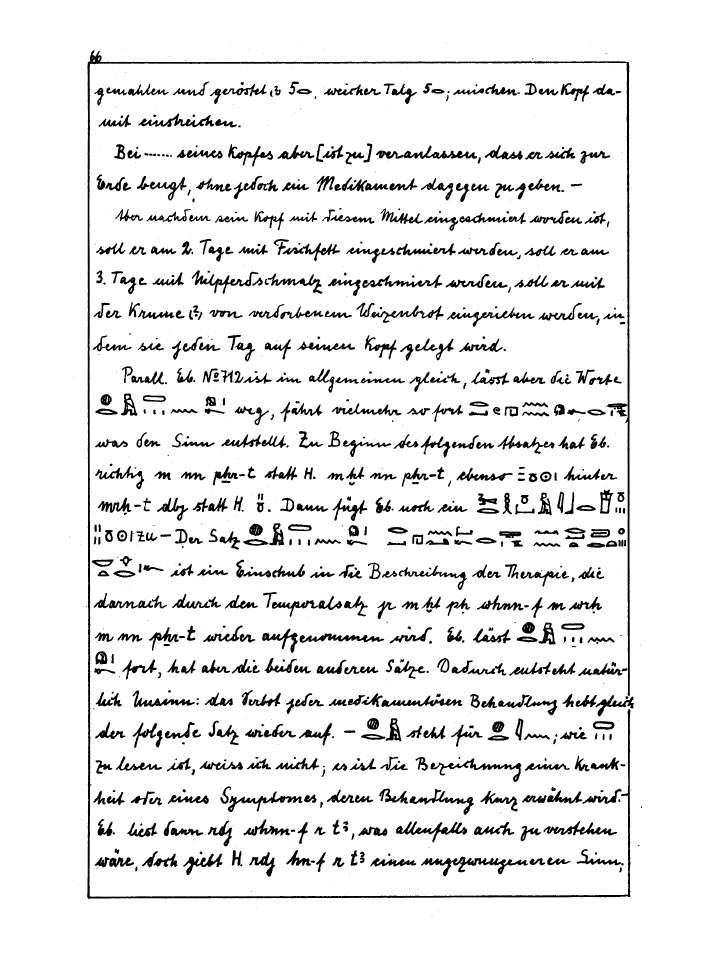 66
gemahlen und geröstet (?) 5, weicher Talg 5; mischen. Den Kopf da-
mit einstreichen.
Bei ....... seines Kopfes aber [ist zu] veranlassen, dass er sich zur
Erde beugt, ohne jedoch ein Medikament dagegen zu geben. –
Aber nachdem sein Kopf mit diesem Mittel eingeschmiert worden ist,
soll er am 2. Tage mit Fischfett eingeschmiert werden, soll er am
3. Tage mit Nilpferdschmalz eingeschmiert werden, soll er mit
der Krume (?) von verdorbenem Weizenbrot eingerieben werden, in-
dem sie jeden Tag auf seinen Kopf gelegt wird.
Parall. Eb. No 712 ist im allgemeinen gleich, lässt aber die Worte
weg, fährt vielmehr so fort
was den Sinn entstellt. Zu Beginn des folgenden Absatzes hat Eb.
richtig m nn pẖr-t statt H. m ḫt nn pẖr-t, ebenso hinter
mrḥ-t dbj statt H. Dann fügt Eb. noch ein
zu – Der Satz
ist ein Einschub in die Beschreibung der Therapie, die
darnach durch den Temporalsatz jr m ḫt pḥ wḥnn-f m wrḥ
m nn pẖr-t wieder aufgenommen wird. Eb. lässt
fort, hat aber die beiden anderen Sätze. Dadurch entsteht natür-
lich Unsinn: das Verbot jeder medikamentösen Behandlung hebt gleich
der folgende Satz wieder auf. – steht für ; wie
zu lesen ist, weiss ich nicht; es ist die Bezeichnung einer Krank-
heit oder eines Symptomes, deren Behandlung kurz erwähnt wird. –
Eb. liest dann rdj wḥnn-f r tꜣ, was allenfalls auch zu verstehen
wäre, doch giebt H. rdj hn-f r tꜣ einen ungezwungeneren Sinn,